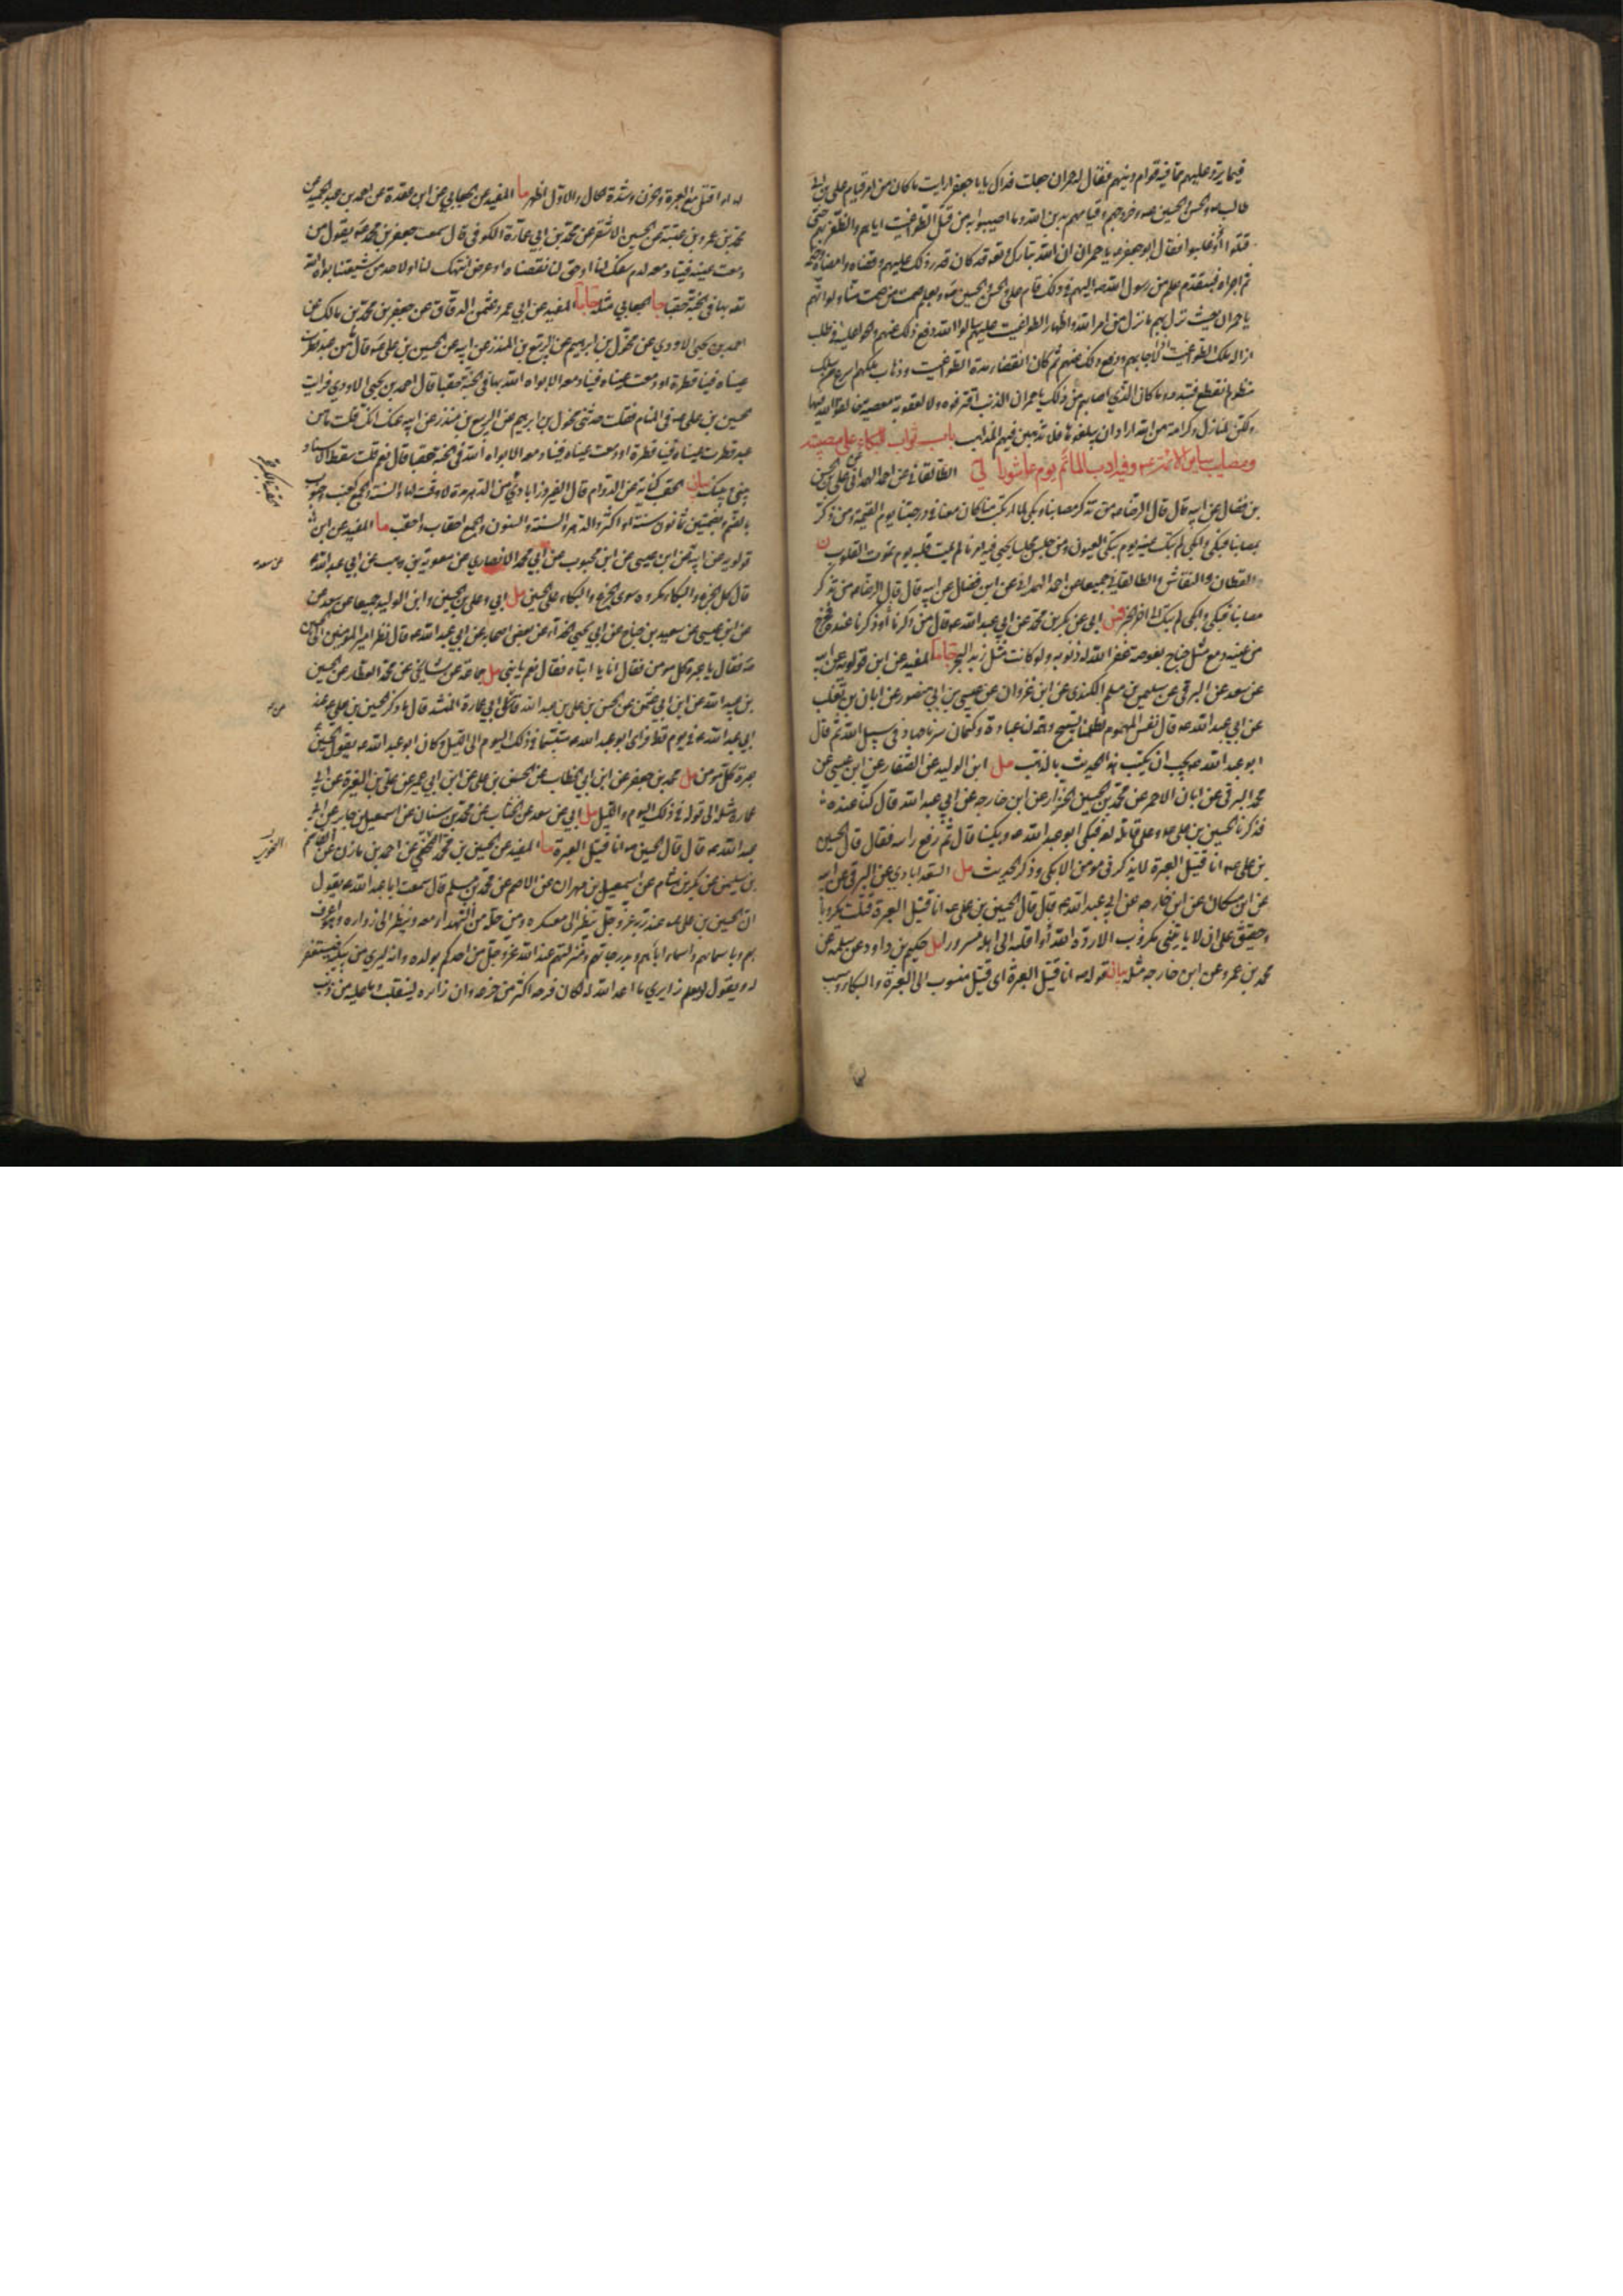 فيما يرد عليهم مما فيه قوام دينهم فقال له حمران جعلت فداك يا با جعفر ارايت ما كان من امر قيام علي بن ابي
طالب والحسن والحسين وخروجهم وقيامهم بدين الله وما اصيبوا به من قبل الطواغيت اياهم والظفر بهم حتى
قتلوا وغلبوا فقال ابو جعفر يا حمران ان الله تبارك وتعالى قد كان قدر ذلك عليهم وقضاه وامضاه
ثم اجراه فبتقدم علم من رسول الله اليهم في ذلك قام علي والحسن والحسين وبعلم صمت من صمت منا ولو انهم
يا حمران حيث نزل بهم ما نزل من امر الله واظهار الطواغيت عليهم سالوا الله دفع ذلك عنهم والحوا عليه في طلب
ازالة ملك الطواغيت اذا لاجابهم ودفع ذلك عنهم ثم كان انقضاء مدة الطواغيت وذهاب ملكهم اسرع من سلك
منظوم انقطع فتبدد وما كان الذي اصابهم من ذلك يا حمران لذنب اقترفوه ولا لعقوبة معصية خالفوا الله فيها
ولكن لمنازل وكرامة من الله اراد ان يبلغوها فلا تذهبن فيهم المذاهب باب ثواب البكاء على مصيبته
ومصايب ساير الائمة وفيه ادب المأتم يوم عاشورا لي الطالقاني عن احمد الهمداني عن علي بن الحسن
بن فضال عن ابيه قال قال الرضا من تذكر مصابنا وبكى لما ارتكب منا كان معنا في درجتنا يوم القيمة ومن ذكر
بمصابنا فبكى وابكى لم تبك عينه يوم تبكي العيون ومن جلس مجلسا يحيى فيه امرنا لم يمت قلبه يوم تموت القلوب ن
القطان والنقاش والطالقاني جميعا عن احمد الهمداني عن ابن فضال عن ابيه قال قال الرضا من تذكر
مصابنا فبكى وابكى لم تبك الى اخر الخبر فس ابي عن بكر بن محمد عن ابي عبد الله قال من ذكرنا او ذكرنا عنده فخرج
من عينه دمع مثل جناح بعوضة غفر الله له ذنوبه ولو كانت مثل زبد البحر جا ما المفيد عن ابن قولويه عن ابيه
عن سعد عن البرقي عن سليمن بن مسلم الكندي عن ابن غزوان عن عيسى بن ابي منصور عن ابان بن تغلب
عن ابي عبد الله قال نفس المهموم لظلمنا تسبيح وهمه لنا عبادة وكتمان سرنا جهاد في سبيل الله ثم قال
ابو عبد الله يجب ان يكتب هذا الحديث بالذهب مل ابن الوليد عن الصفار عن ابن عيسى عن
محمد البرقي عن ابان الاحمر عن محمد بن الحسين الخزاز عن ابن خارجه عن ابي عبد الله قال كنا عنده
فذكرنا الحسين بن علي وعلى قاتله لعنة فبكى ابو عبد الله وبكينا قال ثم رفع راسه فقال قال الحسين
بن علي انا قتيل العبرة لا يذكرني مومن الا بكى وذكر الحديث مل السعد ابادي عن البرقي عن ابيه
عن ابن مسكان عن ابن خارجه عن ابي عبد الله قال قال الحسين بن علي انا قتيل العبرة قتلت مكروبا
وحقيق على ان لا ياتيني مكروب الا رده الله او اقلبه الى اهله مسرورا مل حكيم بن داود عن سلمه عن
محمد بن عمرو عن ابن خارجه مثله بيان قوله انا قتيل العبرة اي قتيل منسوب الى العبرة والبكاء وسبب
لها او اقتل مع العبرة والحزن وشدة الحال والاول اظهر ما المفيد عن الجعابي عن ابن عقدة عن احمد بن عبد الحميد عن
محمد بن عمرو بن عتبة عن الحسين الاشقر عن محمد بن ابي عمارة الكوفي قال سمعت جعفر بن محمد يقول من
دمعت عينه فينا دمعة لدم سفك لنا او حق لنا نقصناه او عرض انتهك لنا او لاحد من شيعتنا بواه الله
تعالى بها في الجنة حقبا جا الجعابي مثله جا ما المفيد عن ابي عمرو عثمن الدقاق عن جعفر بن محمد بن مالك عن
احمد بن يحيى الاودي عن مخول بن ابرهيم عن الربيع بن المنذر عن ابيه عن الحسين بن علي قال ما من عبد قطرت
عيناه فينا قطرة او دمعت عيناه فينا دمعة الا بواه الله بها في الجنة حقبا قال احمد بن يحيى الاودي فرايت
الحسين بن علي في المنام فقلت حدثني مخول بن ابرهيم عن الربيع بن منذر عن ابيه عنك انك قلت ما من
عبد قطرت عيناه فينا قطرة او دمعت عيناه فينا دمعة الا بواه الله في الجنة حقبا قال نعم قلت سقط الاسناد
بيني وبينك بيان الحقب كناية عن الدوام قال الفيروزابادي من الدهر مدة لا وقت لها والسنة والجمع كعنب وحبوب
بالضم وبضمتين ثمانون سنة او اكثر والدهر والسنة والسنون والجمع احقاب واحقب ما المفيد عن ابن
قولويه عن ابيه عن ابن عيسى عن ابن محبوب عن ابي محمد الانصاري عن معوية بن وهب عن ابي عبد الله
قال كل الجزع والبكاء مكروه سوى الجزع والبكاء على الحسين مل ابي وعلي بن الحسين وابن الوليد جميعا عن سعد عن
عن ابن عيسى عن سعيد بن جناح عن ابي يحيى الحذاء عن بعض اصحابه عن ابي عبد الله قال نظر امير المومنين الى الحسين
فقال يا عبرة كل مومن فقال انا يا ابتاه فقال نعم يا بني مل جماعة عن مشايخي عن محمد العطار عن الحسين
بن عبيد الله عن ابن ابي عثمن عن الحسن بن علي بن عبد الله عن ابي عمارة المنشد قال ما ذكر الحسين بن علي عند
ابي عبد الله في يوم قط فراى ابو عبد الله متبسما في ذلك اليوم الى الليل وكان ابو عبد الله يقول الحسين
عبرة كل مومن مل محمد بن جعفر عن ابن ابي الخطاب عن الحسن بن علي عن ابن ابي عمير عن علي بن المغيرة عن ابي
عمارة مثله الى قوله في ذلك اليوم والليل مل ابي عن سعد عن الخشاب عن محمد بن سنان عن اسمعيل بن جابر عن ابي
عبد الله قال قال الحسين انا قتيل العبرة ما المفيد عن الحسين بن محمد النحوي عن احمد بن مازن عن القاسم
بن سليمن عن بكر بن هشام عن اسمعيل بن مهران عن الاصم عن محمد بن مسلم قال سمعت ابا عبد الله يقول
ان الحسين بن علي عند ربه عز وجل ينظر الى معسكره ومن حله من الشهداء معه وينظر الى زواره وهو اعرف
بهم وباسمائهم واسماء ابائهم وبدرجاتهم ومنزلتهم عند الله عز وجل من احدكم بولده وانه ليرى من يبكيه فيستغفر
له ويقول لو يعلم زايري ما اعد الله له لكان فرحه اكثر من جزعه وان زائره لينقلب وما عليه من ذنب